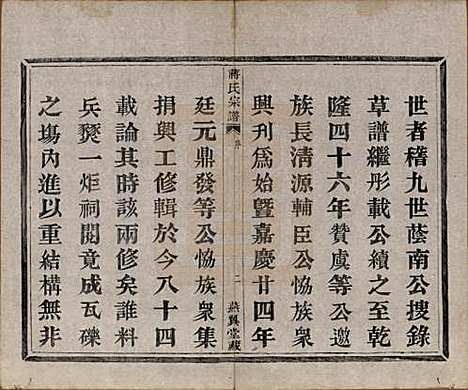 世者稽九世蔭南公搜錄
草譜繼形載公續之至乾
隆四十六年贊虞等公邀
族長清源輔臣公恊衆
興刊爲始暨嘉慶廿四年
蔣氏宗譜
序
二
燕翼堂藏
廷元鼎發等公恊族衆集
捐興工修輯於今八十四
載論其時該兩修矣誰料
兵燹一炬祠閣竟成瓦礫
之塲內進以重結構無非